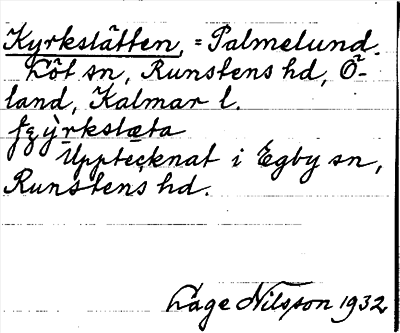 Kyrkslätten, = Palmelund.
Löt sn, Runstens hd, Ö-
land, Kalmar l.
Upptecknat i Egby sn,
Runstens hd.
Låge Nilsson 1932